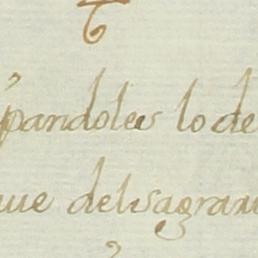 pandoles lo de
que del sagran